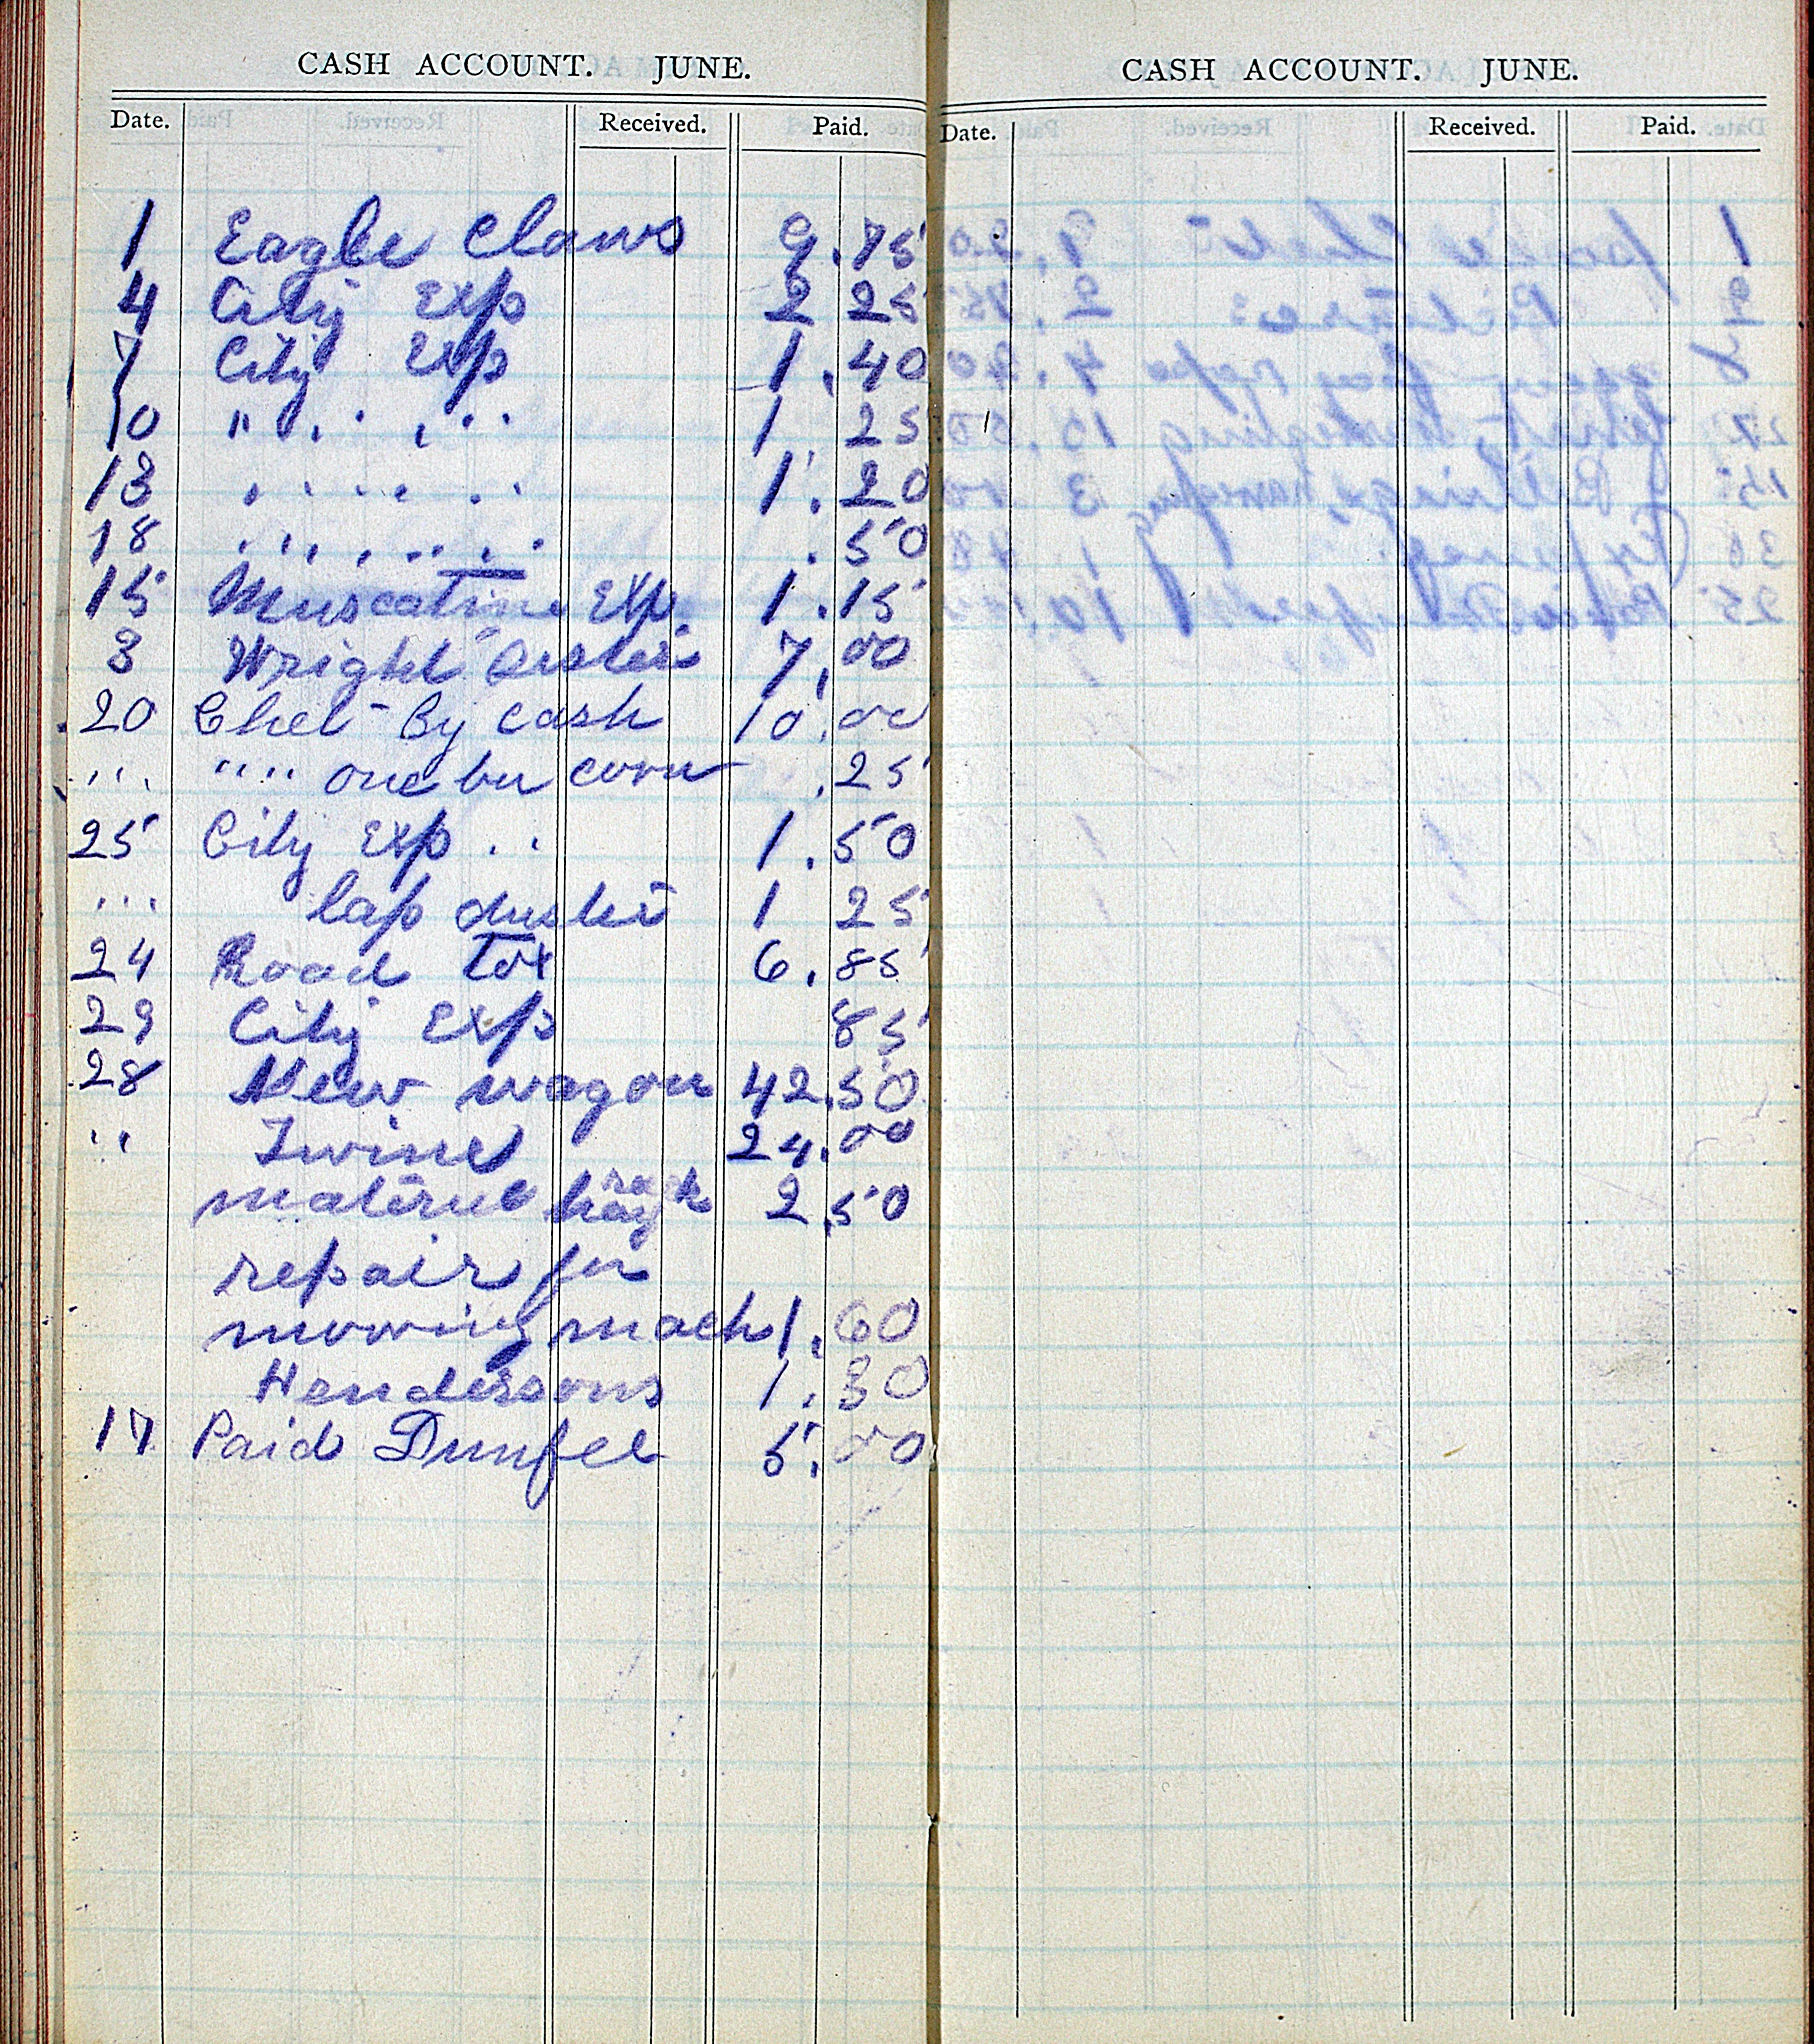 CASH ACCOUNT. JUNE.
Date. Received. Paid.
1 Eagle Claws 9.75
4 City Exp 2 25
7 City Exp 1.40
10 " . . . . . 1 25
13 . . . . . . 1.20
18 . . . . . . . .50
15 Muscatine Exp. 1.15
3 Wright 7.00
20 Chet - By cash 10.00
" " " one bu corn .25
25 City Exp . . 1.50
" lap duster 1 25
24 Road Tax 6.85
29 City Exp 85
28 New wagon 42.50
" Twine 24.00
material hay rack 2.50
repair for
mowing mach 1.60
Hendersons 1.30
17 Paid Dunfee 5.00
CASH ACCOUNT. JUNE.
Date. Received. Paid.